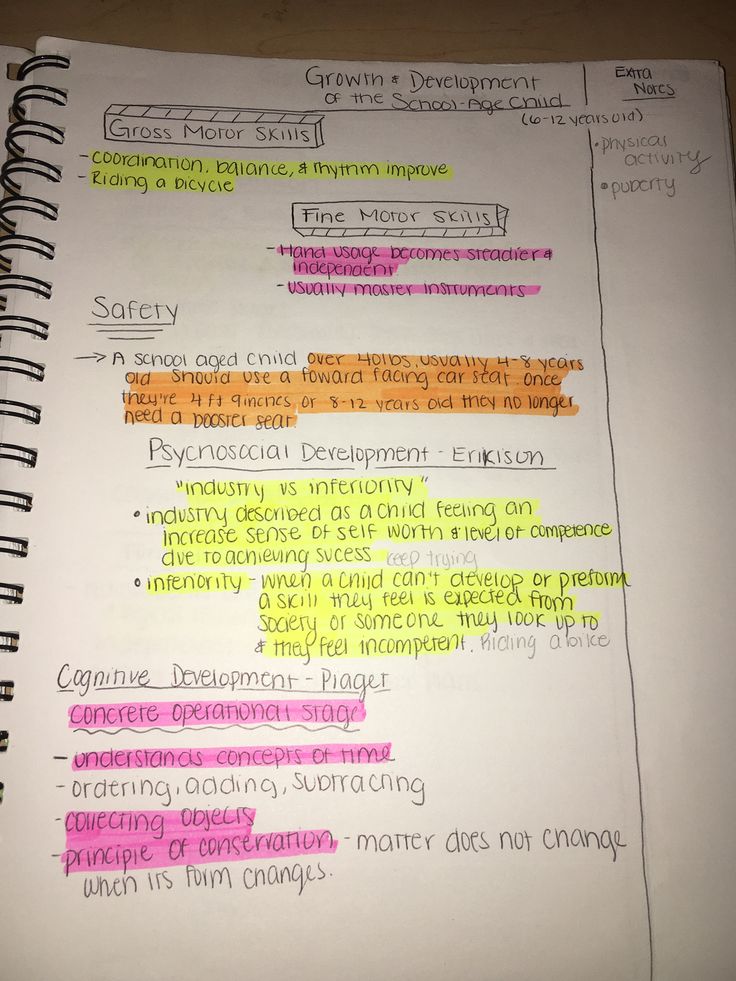 Growth & Development
of the School-Age Child
(6-12 years old)
Extra
Notes
• physical
activity
• puberty
Gross Motor Skills
- coordination, balance, & rhythm improve
- Riding a bicycle
Fine Motor Skills
- Hand usage becomes steadier &
independent
- usually master instruments
Safety
→ A school aged child over 40lbs, usually 4-8 years
old should use a foward facing car seat. Once
they're 4 ft 9inches or 8-12 years old they no longer
need a booster seat.
Psychosocial Development - Erikison
"industry vs inferiority"
• industry described as a child feeling an
increase sense of self worth & level of competence
due to achieving sucess keep trying
• inferiority - when a child can't develop or preform
a skill they feel is expected from
society or someone they look up to
& they feel incompetent. Riding a bike
Cognitive Development - Piaget
concrete operational stage
- understands concepts of time
- ordering, adding, subtracting
- collecting objects
- principle of conservation - matter does not change
when its form changes.